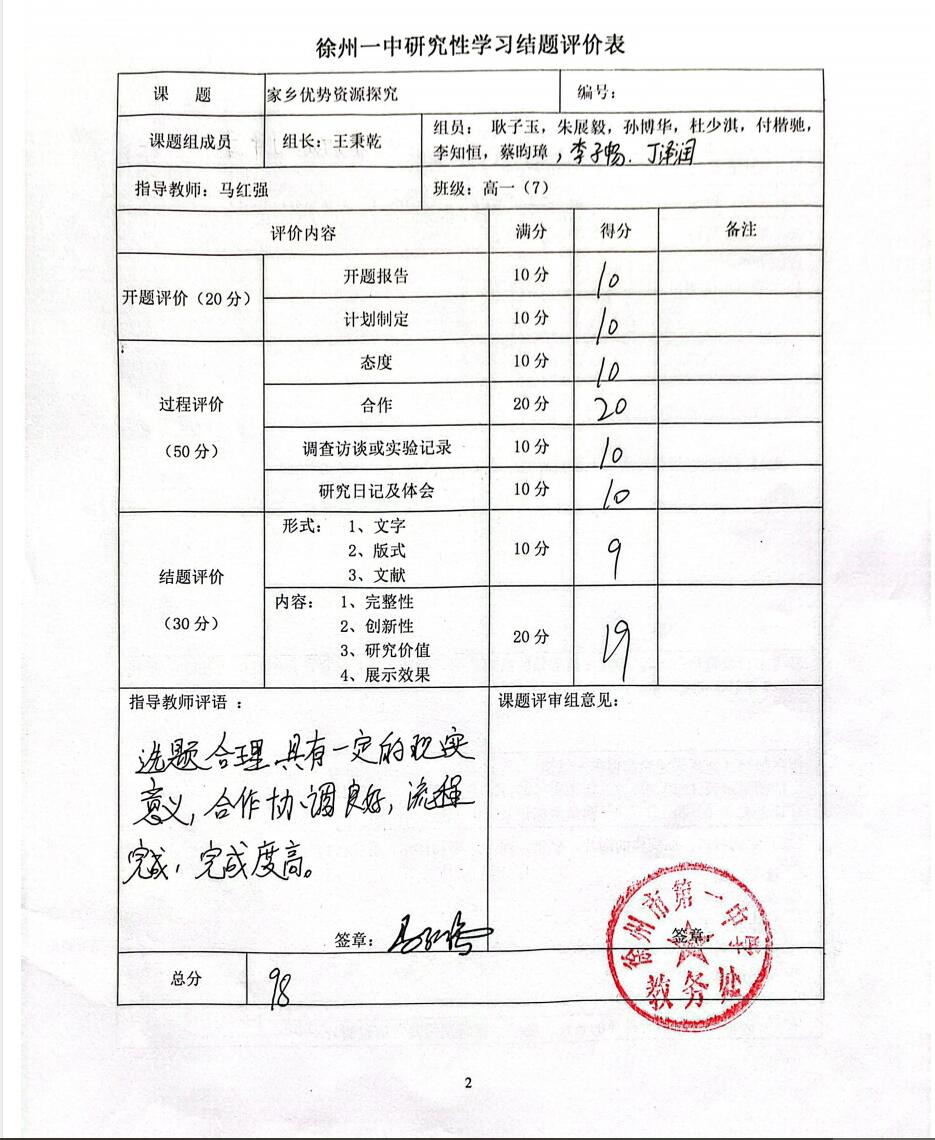 徐州一中研究性学习结题评价表
课 题 家乡优势资源探究 编号：
课题组成员 组长：王秉乾 组员： 耿子玉，朱展毅，孙博华，杜少淇，付楷驰，
李知恒，蔡昀璋，李子畅、丁泽润
指导教师：马红强 班级：高一（7）
评价内容 满分 得分 备注
开题评价（20分） 开题报告 10分 10
计划制定 10分 10
过程评价
（50分）
态度 10分 10
合作 20分 20
调查访谈或实验记录 10分 10
研究日记及体会 10分 10
结题评价
（30分）
形式： 1、文字
2、版式
3、文献
10分 9
内容： 1、完整性
2、创新性
3、研究价值
4、展示效果
20分 19
指导教师评语 ：
选题合理，具有一定的现实
意义，合作协调良好，流程
完成，完成度高。
签章： 马红强
课题评审组意见：
签章
徐州市第一中学
教务处
总分 98
2